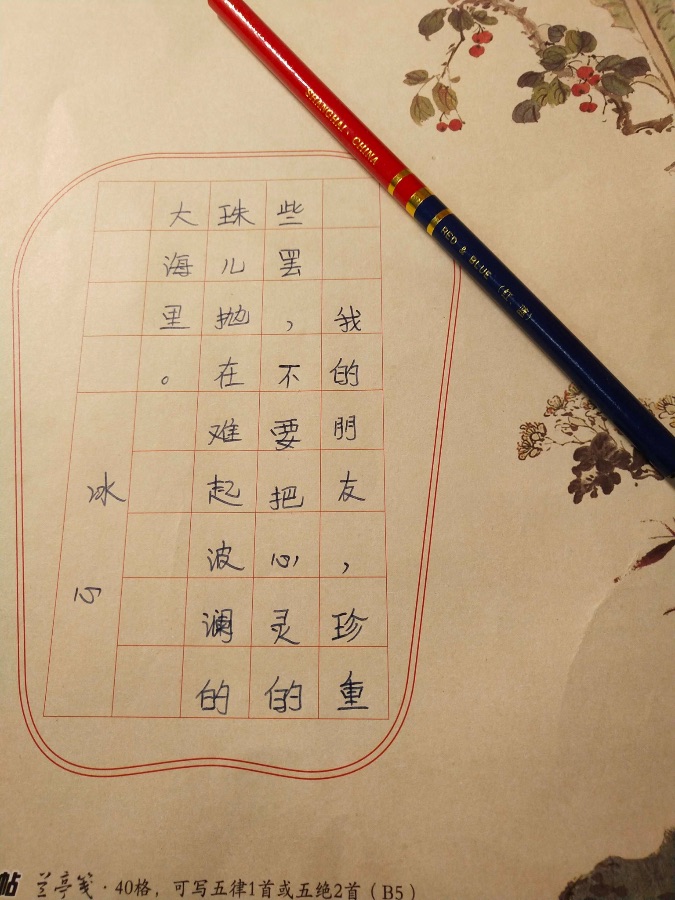 SHANGHAI · CHINA
RED & BLUE (红 蓝)
我的朋友，珍重
些罢，不要把心灵的
珠儿抛在难起波澜的
大海里。
冰心
帖 兰亭笺·40格，可写五律1首或五绝2首（B5）